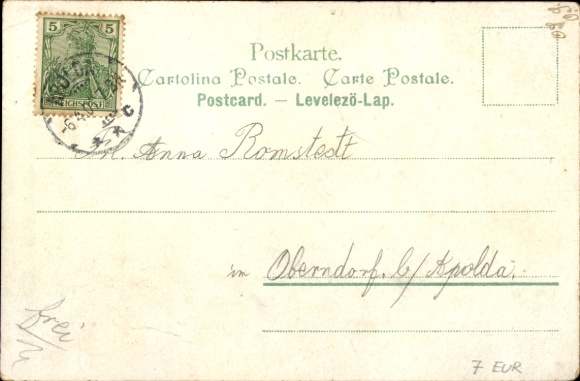 5 5
REICHSPOST
Postkarte.
Cartolina Postale. Carte Postale.
Postcard. — Levelező-Lap.
Frl. Anna Romstedt
in Oberndorf. b/Apolda.
frei
7 EUR